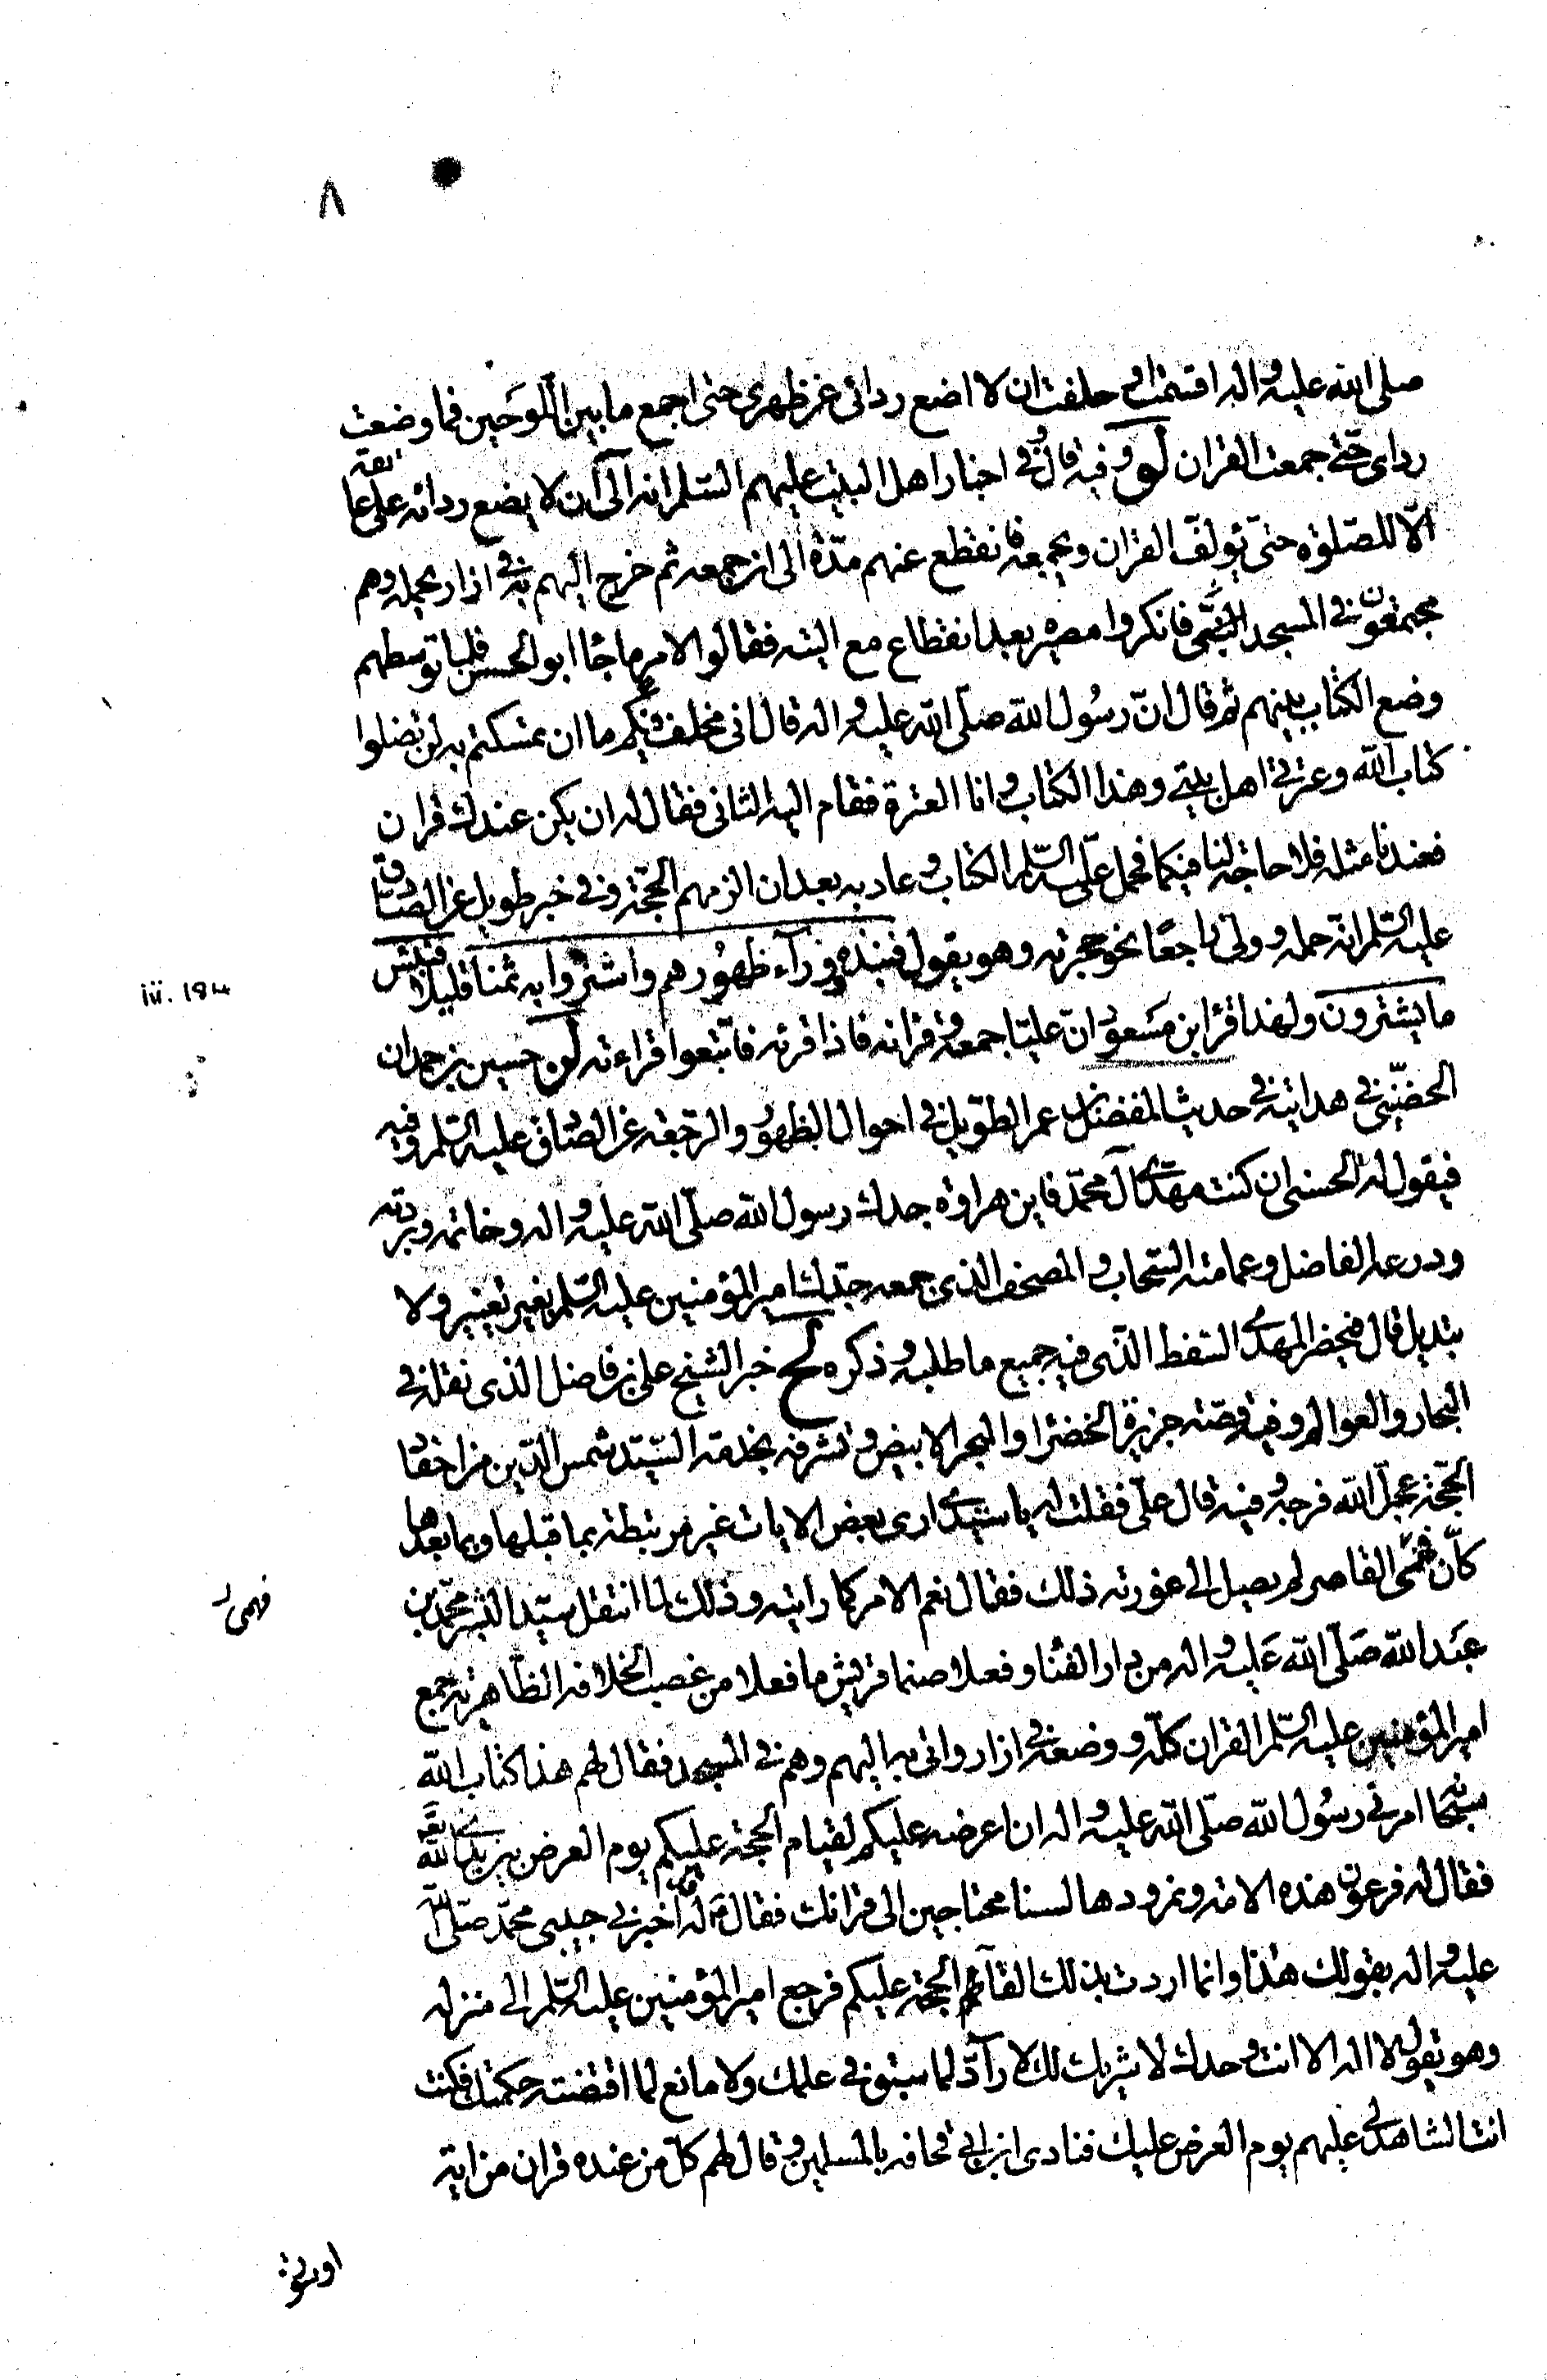 ٨
صلى الله عليه واله اقسمت او حلفت ان لا اضع ردائى عن ظهرى حتى اجمع ما بين اللوحين فما وضعت
رداى حتى جمعت القران لو وفيه قال وفى اخبار اهل البيت عليهم السلم انه آلى ان لا يضع ردائه على عاتقه
الّا للصّلوة حتى يؤلف القران ويجمعه فانقطع عنهم مدّة الى ان جمعه ثم خرج اليهم به فى ازار يحمله وهم
مجتمعون فى المسجد فانكروا مصيره بعد انقطاع مع البته فقالوا الامر ما جاء ابو الحسن فلما توسطهم
وضع الكتاب بينهم ثم قال انّ رسُول الله صلّى الله عليه واله قال انى مخلف فيكم ما ان تمسكتم به لن تضلوا
كتاب الله وعترتى اهل بيتى وهذا الكتاب وانا العترة فقام اليه الثانى فقال له ان يكن عندك قران
فعندنا مثله فلا حاجة لنا فيكما فحمل عليه السّلم الكتاب وعاد به بعد ان الزمهم الحجّة وفى خبر طويل عن الصّادق
عليه السّلم انه حمله وولى راجعًا نحو حجرته وهو يقول فنبذوه ورآء ظهُورهم واشتروا به ثمنا قليلا فبئس
ما يشترون ولهذا قرا ابن مسَعود انّ عليّا جمعه وقرانه فاذا قرئه فاتّبعوا قراءته لون حسين بن حمدان
iii. 184
الحضينى فى هدايته فى حديث المفضل بن عمر الطّويل فى احوال الظهور والرّجعة عن الصّادق عليه السّلم وفيه
فيقول له الحسنى ان كنت مهدى آل محمّد فاين هراوة جدك رسول الله صلّى الله عليه واله وخاتمه وبردته
ودرعه الفاضل وعمامته السّحاب والمصحف الذى جمعه جدّك امير المؤمنين عليه السّلم بغير تغيير ولا
تبديل قال فيحضر المهدى السّفط الذى فيه جميع ما طلبه وذكره لح خبر الشيخ على بن فاضل الذى نقله فى
البحار والعوالم وفيه قصّة جزيرة الخضرا والبحر الابيض وتشرفه بخدمة السّيّد شمس الدّين من احفاد
الحجّة عجّل الله فرجه وفيه قال علىّ فقلت له يا سيّدى ارى بعض الايات غير مرتبطة بما قبلها وبما بعدها
كانّ فهمى القاصر لم يصل الى غورته ذلك فقال نعم الامر كما رايته وذلك لما انتقل سيّد البشر محمّد بن
فهمى
عبَد الله صَلّى الله عَليه واله من دار الفنا وفعلا صنما قريش ما فعلا من غصب الخلافه الظّاهرية جمع
امير المؤمنين عليه السّلم القران كلّه ووضعه فى ازار واتى به اليهم وهم فى المسجد فقال لهم هذا كتاب الله
سبحانه امرنى رسُول الله صلّى الله عليه واله ان اعرضه عليكم لقيام الحجة عليكم يوم العرض بين يدى الله تعَه
فقال له فرعون هذه الامّة ونمرودها لسنا محتاجين الى قرانك فقال له اخبرنى حبيبى محمّد صلّى الله
عليه واله بقولك هذا وانما اردت بذلك القآء الحجّة عليكم فرجع امير المؤمنين عليه السّلم الى منزله
وهو يقول لا اله الا انت وحدك لا شريك لك لا رآدّ لما سبق فى علمك ولا مانع لما اقتضته حكمتك فكن
انت الشاهد لى عليهم يوم العرض عليك فنادى ابن ابى قحافه بالمسلمين وقال لهم كلّ من عنده قران من اية
او سورة